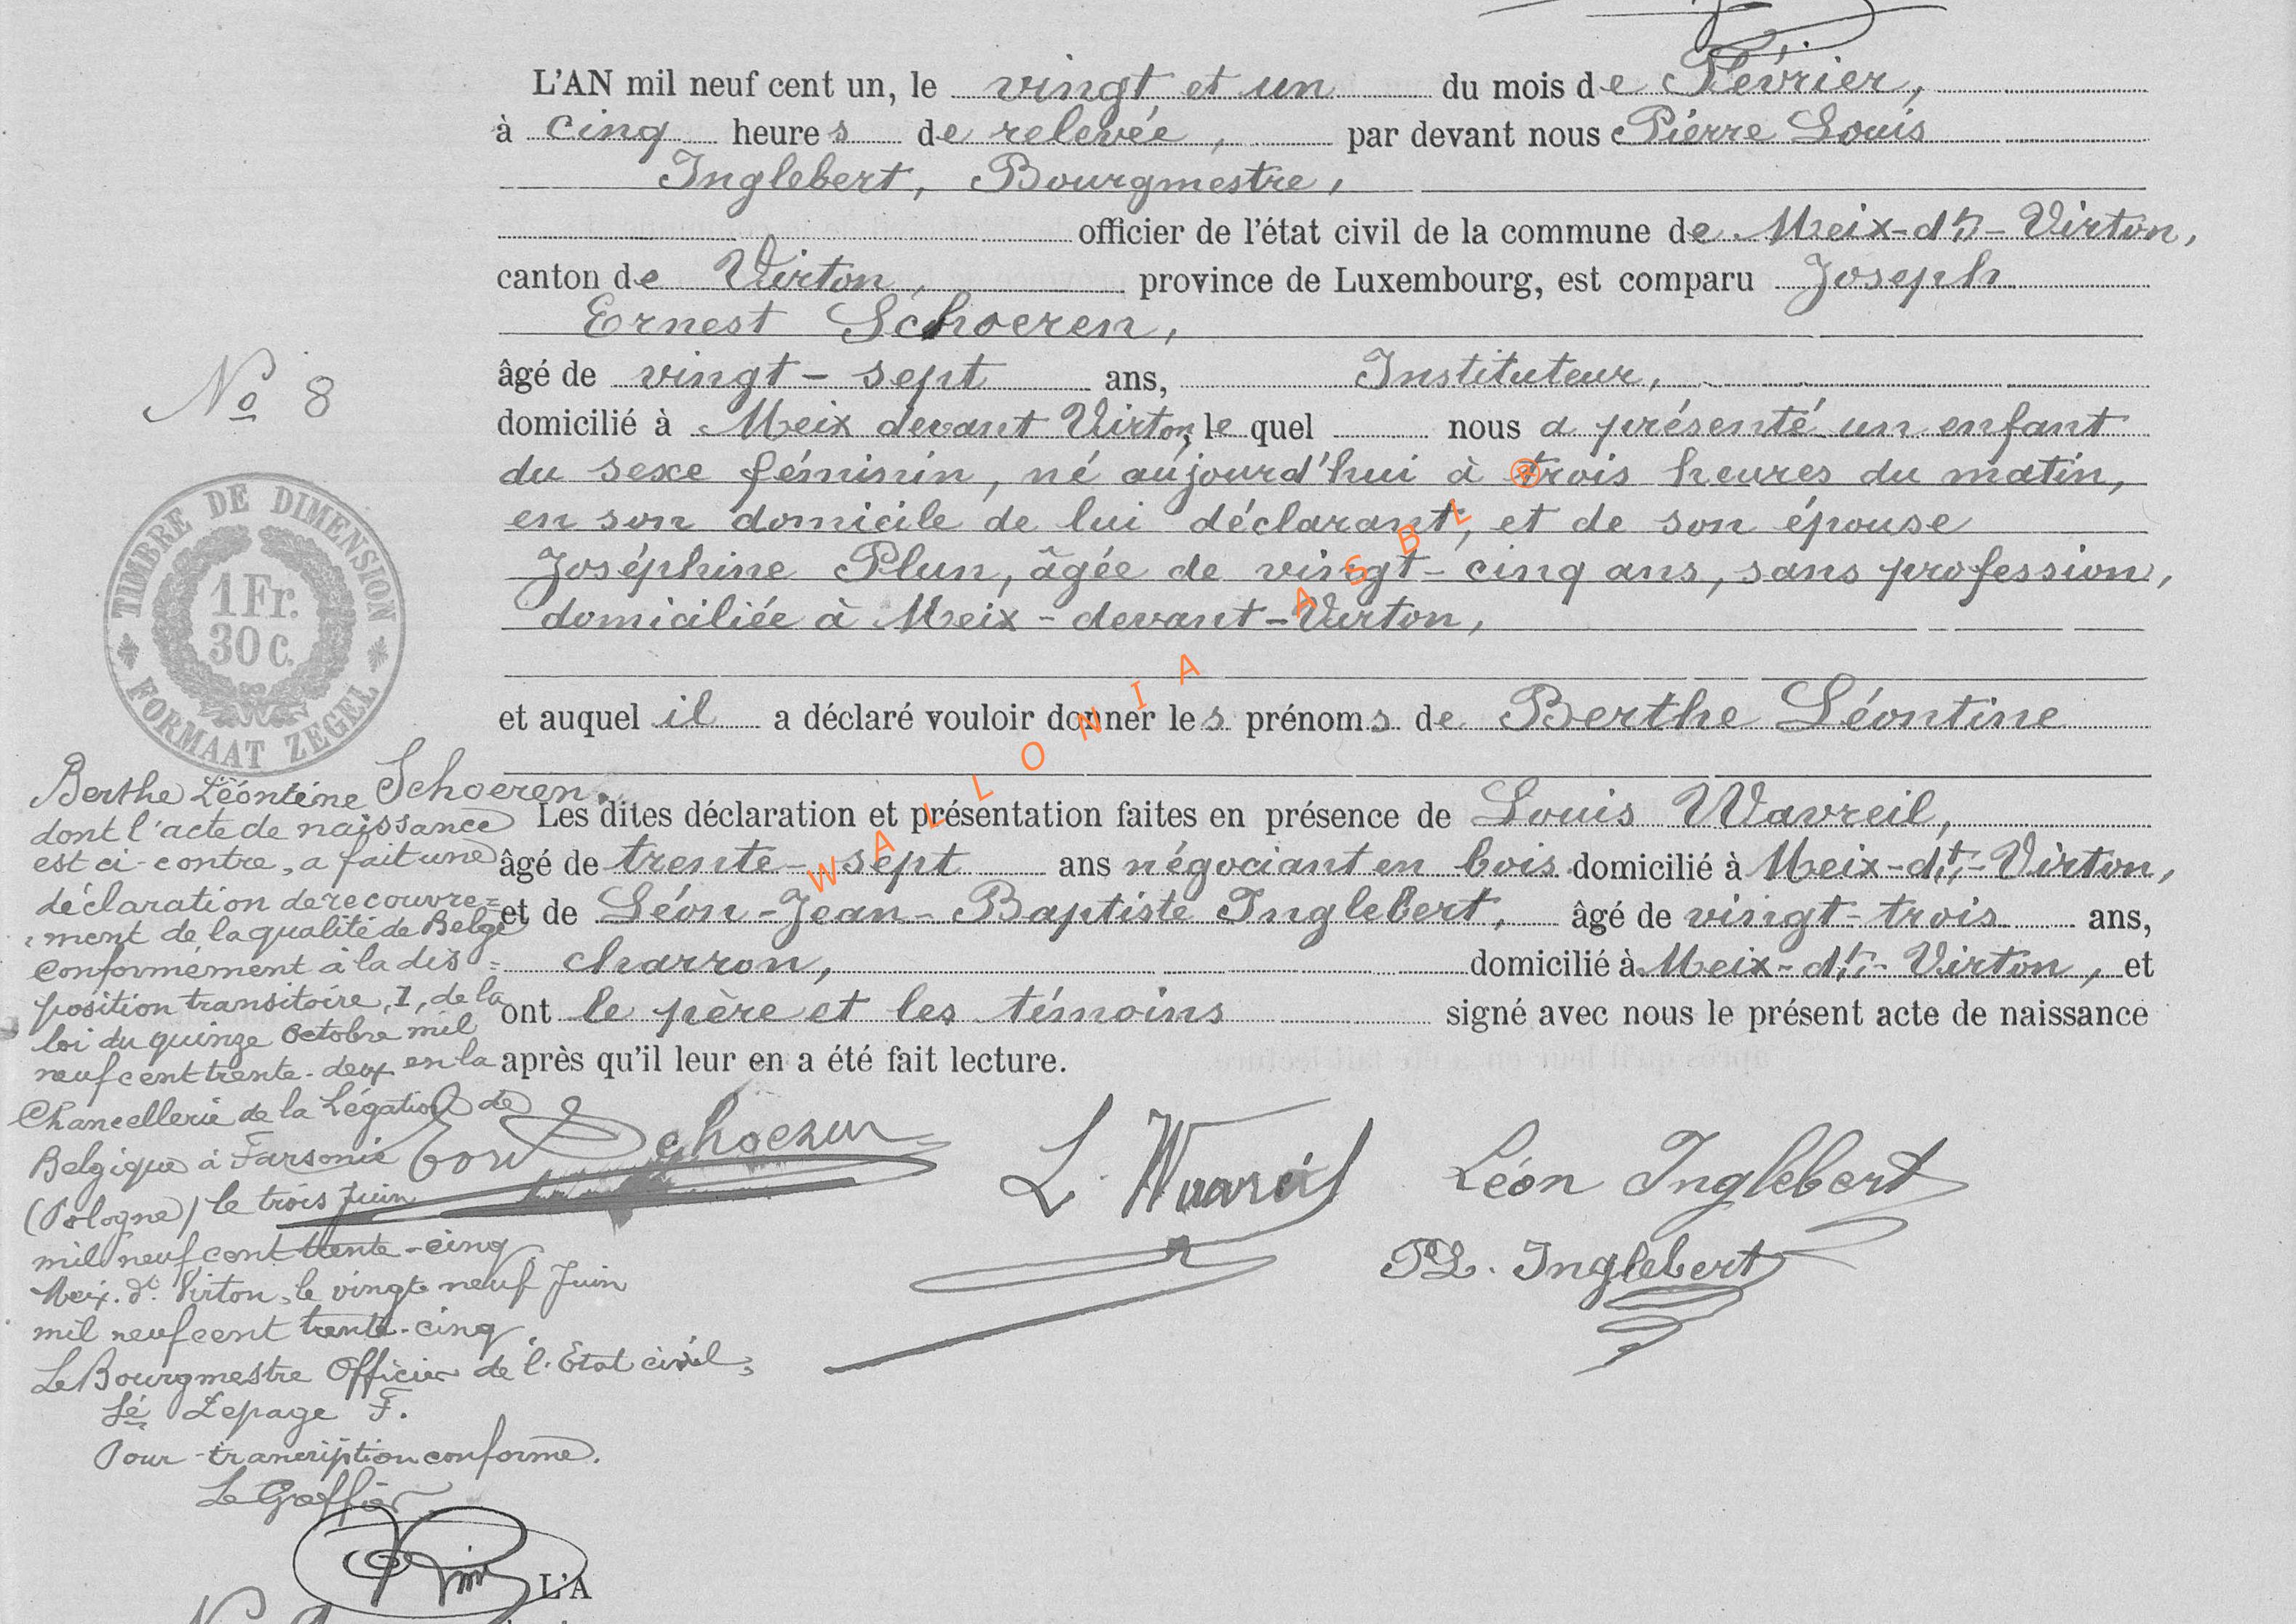 L'AN mil neuf cent un, le vingt et un du mois de Février,
à cinq heures de relevée, par devant nous Pierre Louis
Inglebert, Bourgmestre,
officier de l'état civil de la commune de Meix-dt-Virton,
canton de Virton, province de Luxembourg, est comparu Joseph
Ernest Schoeren,
âgé de vingt-sept ans, Instituteur,
domicilié à Meix devant Virton, le quel nous a présenté un enfant
du sexe féminin, né aujourd'hui à trois heures du matin,
en son domicile de lui déclarant, et de son épouse
Joséphine Plun, âgée de vingt-cinq ans, sans profession,
domiciliée à Meix-devant-Virton,
et auquel il a déclaré vouloir donner les prénoms de Berthe Léontine
Les dites déclaration et présentation faites en présence de Louis Wavreil,
âgé de trente-sept ans négociant en bois domicilié à Meix-dt-Virton,
et de Léon-Jean-Baptiste Inglebert, âgé de vingt-trois ans,
charron, domicilié à Meix-dt-Virton, et
ont le père et les témoins signé avec nous le présent acte de naissance
après qu'il leur en a été fait lecture.
Schoeren
L. Wavreil
Léon Inglebert
PL. Inglebert
No 8
TIMBRE DE DIMENSION
1 Fr.
30 c.
FORMAAT ZEGEL
Berthe Léontine Schoeren.
dont l'acte de naissance
est ci-contre, a fait une
déclaration de recouvre=
ment de la qualité de Belge
conformément à la dis=
position transitoire, 1, de la
loi du quinze octobre mil
neuf cent trente-deux en la
Chancellerie de la Légation de
Belgique à Farsonie
(Pologne) le trois Juin
mil neuf cent trente-cinq
Meix. dt. Virton, le vingt neuf Juin
mil neuf cent trente-cinq.
Le Bourgmestre Officier de l'Etat civil,
Sé Lepage F.
Pour trancription conforme.
Le Greffier
L'A
WALLONIA ASBL ®